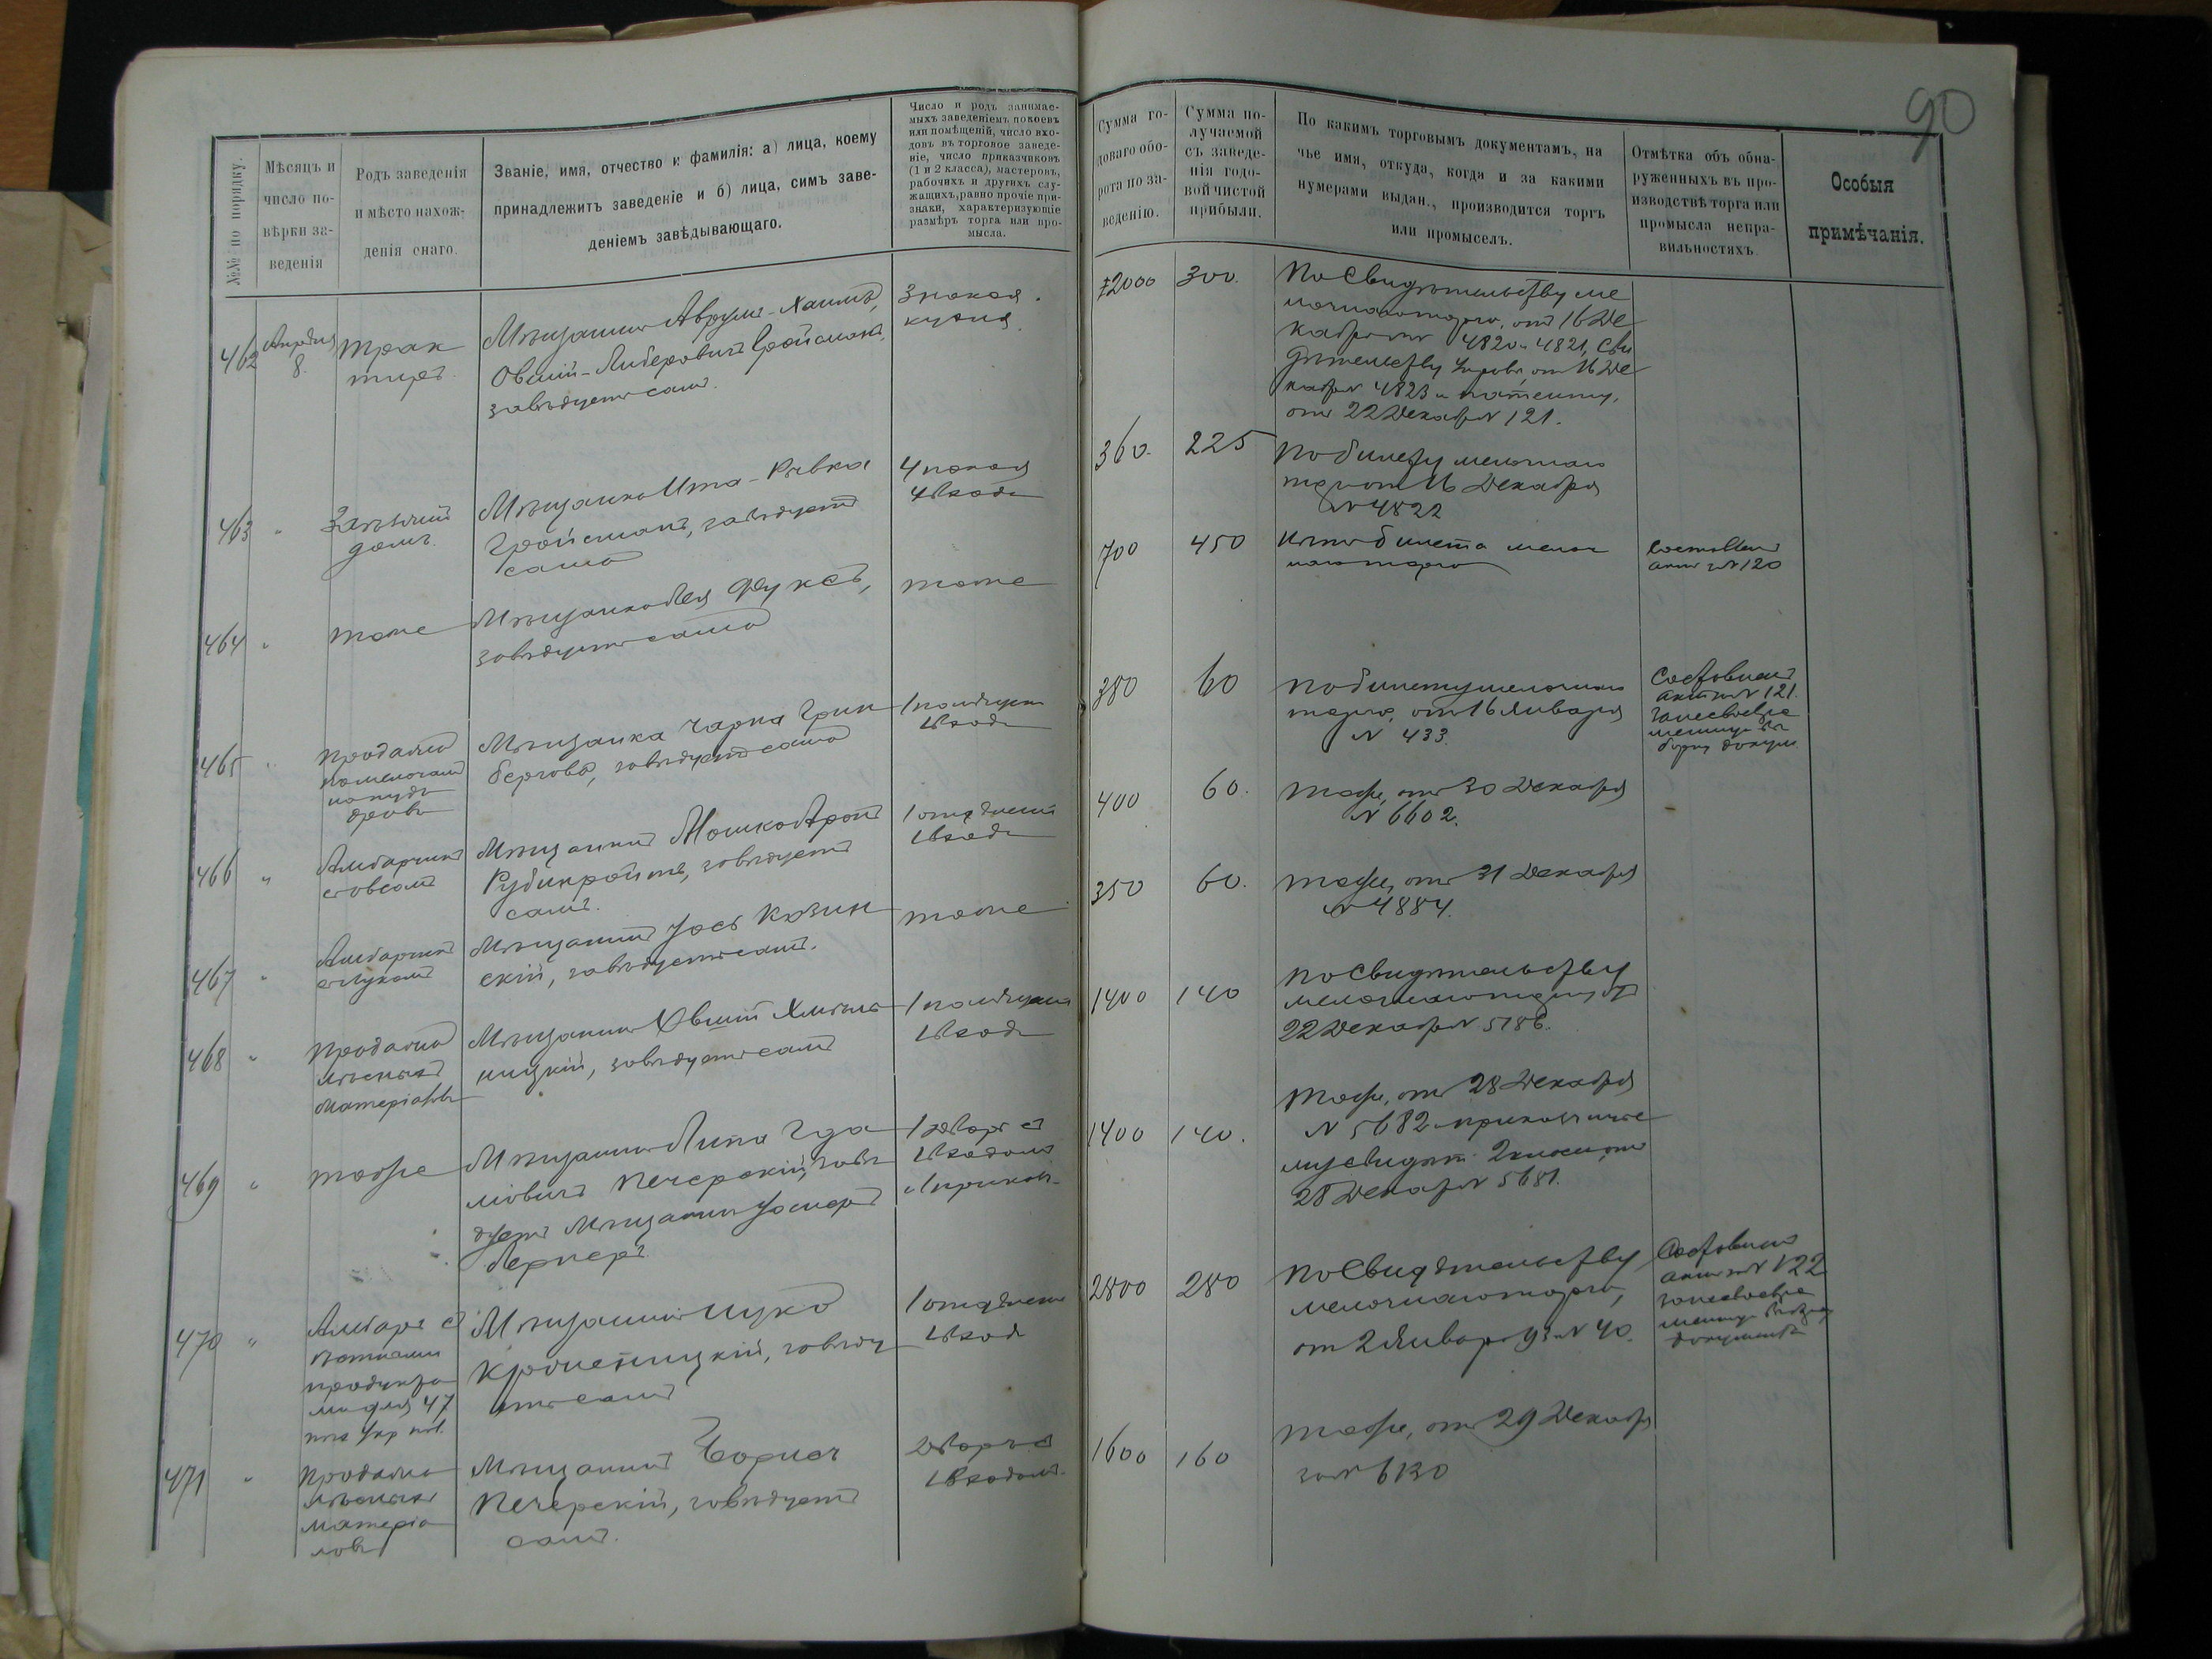 90
№№ по порядку.
Мѣсяцъ и
число по-
вѣрки за-
ведения
Родъ заведенія
и мѣсто нахож-
денія онаго.
Званіе, имя, отчество и фамилія: а) лица, коему
принадлежитъ заведеніе и б) лица, симъ заве-
деніемъ завѣдывающаго.
Число и родъ занимае-
мыхъ заведеніемъ покоевъ
или помѣщеній, число вхо-
довъ въ торговое заведе-
ніе, число приказчиковъ
(1 и 2 класса), мастеровъ,
рабочихъ и другихъ слу-
жащихъ, равно прочіе при-
знаки, характеризующіе
размѣръ торга или про-
мысла.
Сумма го-
доваго обо-
рота по за-
веденію.
Сумма по-
лучаемой
съ заведе-
нія годо-
вой чистой
прибыли.
По какимъ торговымъ документамъ, на
чье имя, откуда, когда и за какими
нумерами выдан., производится торгъ
или промыселъ.
Отмѣтка объ обна-
руженныхъ въ про-
изводствѣ торга или
промысла непра-
вильностяхъ.
Особыя
примѣчанія.
462
Апрѣля
8.
Трак
тиръ.
Мѣщанинъ Аврумъ-Хаимъ,
Овшій-Либеровичъ Гройсманъ,
завѣдуетъ самъ.
3 покоя.
кухня.
2000
300.
По Свидѣтельству ме
лочнаго торга, отъ 16 Де
кабря № 4820 и 4821, Сви
дѣтельству отъ 16 Де
кабр № 4823 и патенту,
отъ 22 Декабр № 121.
463 "
Заѣзжій
домъ.
Мѣщанка Ита-Ривка
Гройсманъ, завѣдуетъ
сама
4 покоя
1 входъ
360.
225
По билету мелочнаго
торга отъ 16 Декабря
№ 4822
464 "
тоже
Мѣщанка Лея Фуксъ,
завѣдуетъ сама
тоже
700
450
Нѣтъ билета мелоч
наго торга
Составленъ
актъ за № 120
465 "
Продажа
дровъ
Мѣщанка Чарна Грин
бергова, завѣдуетъ сама
1 помѣщен
1 входъ
380
60
по билету мелочнаго
торга, отъ 16 Января
№ 433.
Составленъ
актъ за № 121.
за несвоевре
менную вы
борку докум.
466 "
Амбарчикъ
съ овсомъ
Мѣщанинъ Мошко Аронъ
Рубинройтъ, завѣдуетъ
самъ.
1 отдѣленіе
1 входъ
400
60.
тоже, отъ 30 Декабря
№ 6602.
467 "
Амбарчикъ
съ Лукомъ
Мѣщанинъ Іось Козин
скій, завѣдуетъ самъ.
тоже
350
60.
тоже, отъ 31 Декабря
№ 4884.
468 "
Продажа
лѣсныхъ
матеріаловъ
Мѣщанинъ Овшій Хмѣль
ницкій, завѣдуетъ самъ
1 помѣщен
1 входъ
1400
140
по Свидѣтельству
мелочнаго торга, отъ
22 Декабря № 5186.
469 "
тоже
Мѣщанинъ Липа Гда
ліовичъ Печерскій, завѣ
дуетъ Мѣщанинъ Іосифъ
Лернеръ
1 дворъ съ
1 входомъ
и 1 приказч.
1400
140.
Тоже, отъ 28 Декабря
№ 5682 и приказчиче
му свидѣт. 2 класса, отъ
28 Декабр № 5681.
470 "
Амбаръ съ
продукта
ми для 47
Мѣщанинъ Ицко
Кременицкій, завѣду
етъ самъ
1 отдѣленіе
1 входъ
2800
280
по Свидѣтельству
мелочнаго торга,
от 2 Января 93 г. № 40.
Составленъ
актъ за № 122
за несвоевре
менную выборку
документа
471 "
Продажа
лѣсныхъ
матеріа
ловъ
Мѣщанинъ Борисъ
Печерскій, завѣдуетъ
самъ.
Дворъ съ
1 входомъ
1600
160
тоже, отъ 29 Декабря
за № 6130